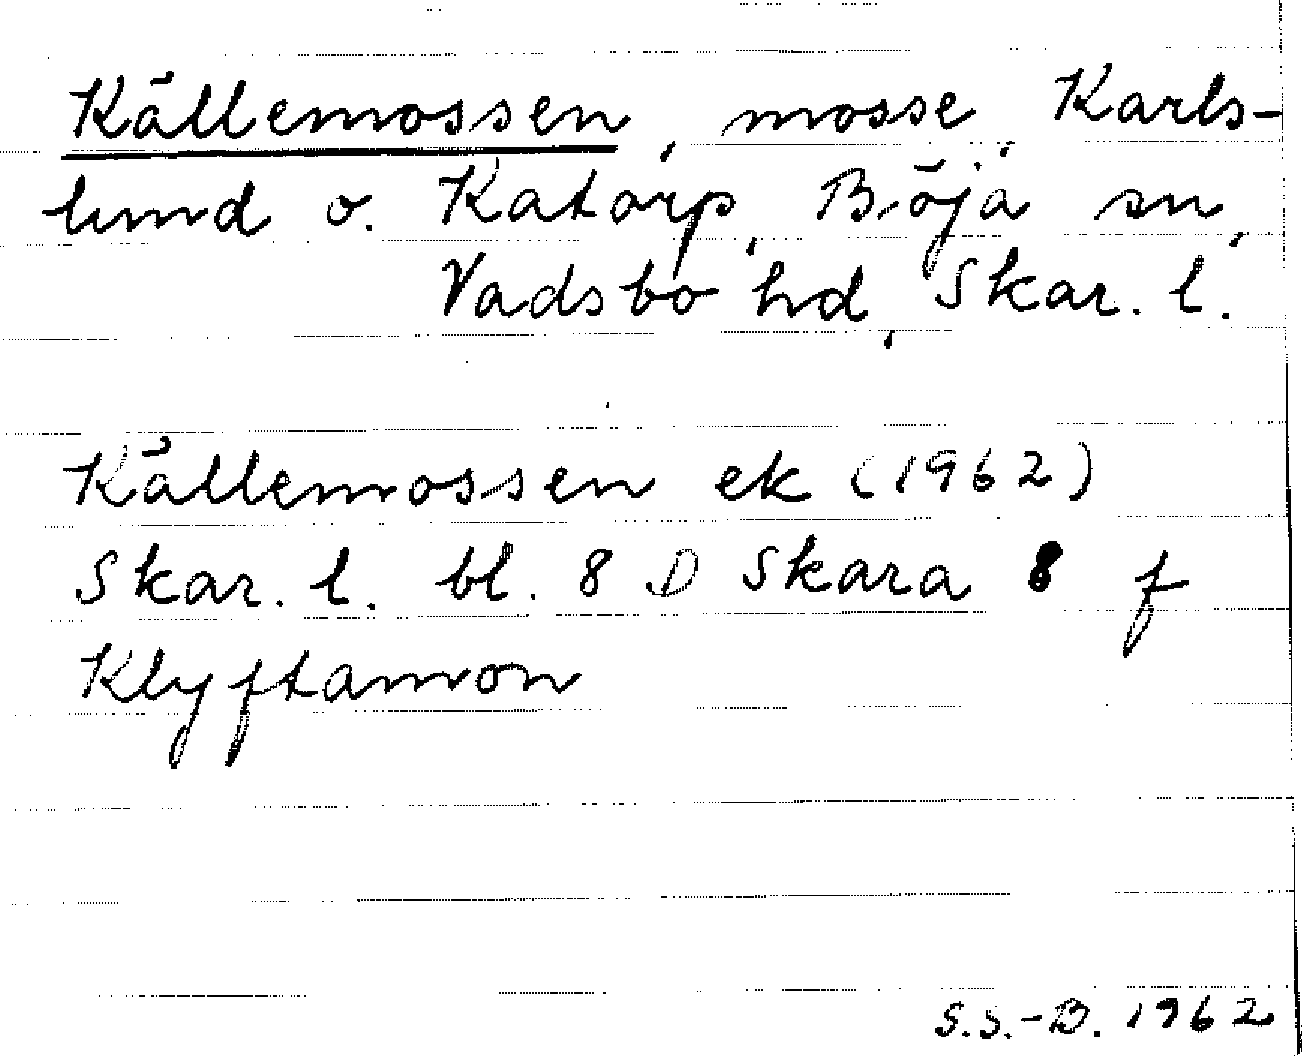 Källemossen, mosse, Karls-
lund o. Katorp, Böja sn,
Vadsbo hd, Skar. l.
Källemossen ek (1962)
Skar. l. bl. 8 D Skara 8 f
Klyftamon
S.S.-B. 1962